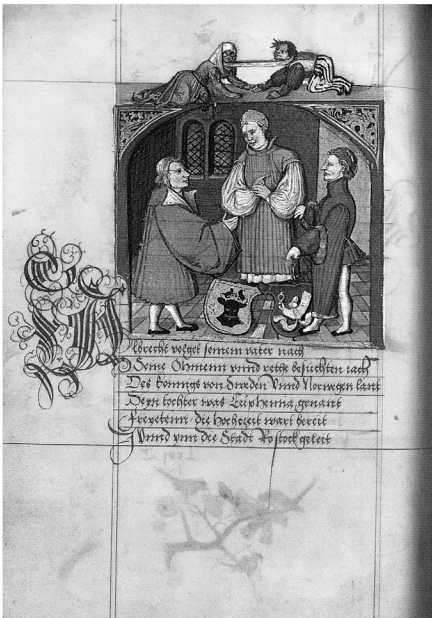 Albrecht volget seinem vater nach
Seine Ohmenn vnnd rethe besuchten iach
Des königs von Sweden Vnnd Norwegen lant
Deßn tochter was Euphemia genant
Freyetenn die hochzeit wart bereit
Vnnd ynn die Stadt Rostock geleit